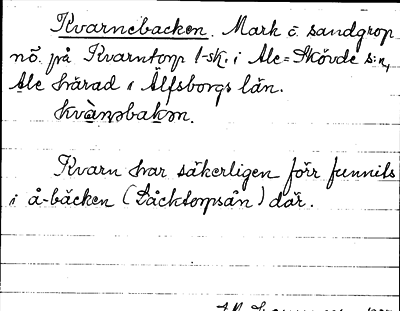 Kvarnebacken. Mark o. sandgrop
nö. på Kvarntorp 1-sk. i Ale-Skövde s:n,
Ale härad i Älfsborgs län.
kvànəbakən.
Kvarn har säkerligen förr funnits
i å-bäcken (Låcktorpsån) där.